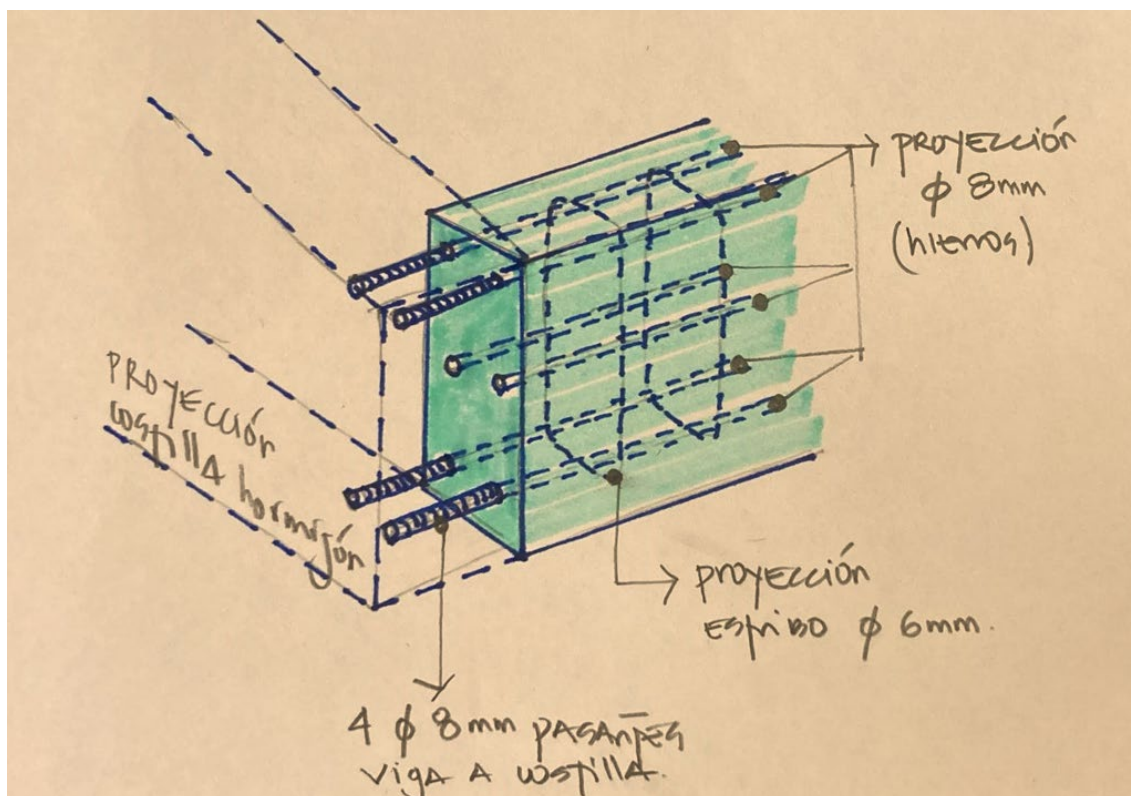 PROYECCIÓN
ϕ 8mm
(hierros)
PROYECCIÓN
costilla hormigón
PROYECCIÓN
ESTRIBO ϕ 6mm.
4 ϕ 8mm PASANTES
VIGA A COSTILLA.